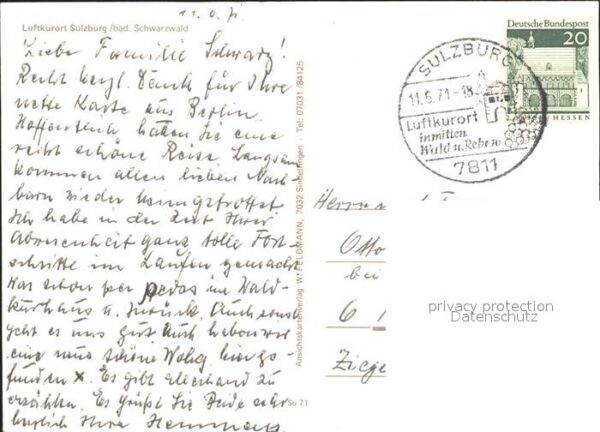 11.6.71
Luftkurort Sulzburg /bad. Schwarzwald
Liebe Familie Schwarz!
Recht herzl. Dank für Ihre
nette Karte aus Berlin.
Hoffentlich hatten Sie eine
recht schöne Reise. Langsam
kommen allen lieben Nach-
barn wieder heimgetrottet
Ich habe in der Zeit Ihrer
Abwesenheit ganz tolle Fort-
schritte im Laufen gemacht
War schon per pedes im Wald-
kurhaus u. zurück. Auch sonst
geht es uns gut. Auch haben wir
eine neue schöne Wohng
funden. Es gibt allerhand zu
erzählen. Es grüßt Sie Beide sehr
herzlich Ihre
Ansichtskartenverlag W. FELDMANN, 7032 Sindelfingen - Tel: 07031/84125
Su 71
Deutsche Bundespost
20
HESSEN
SULZBURG
11.6.71-18
Luftkurort
inmitten
Wald u. Reben
7811
Herrn
Otto
bei
6
Ziege
privacy protection
Datenschutz